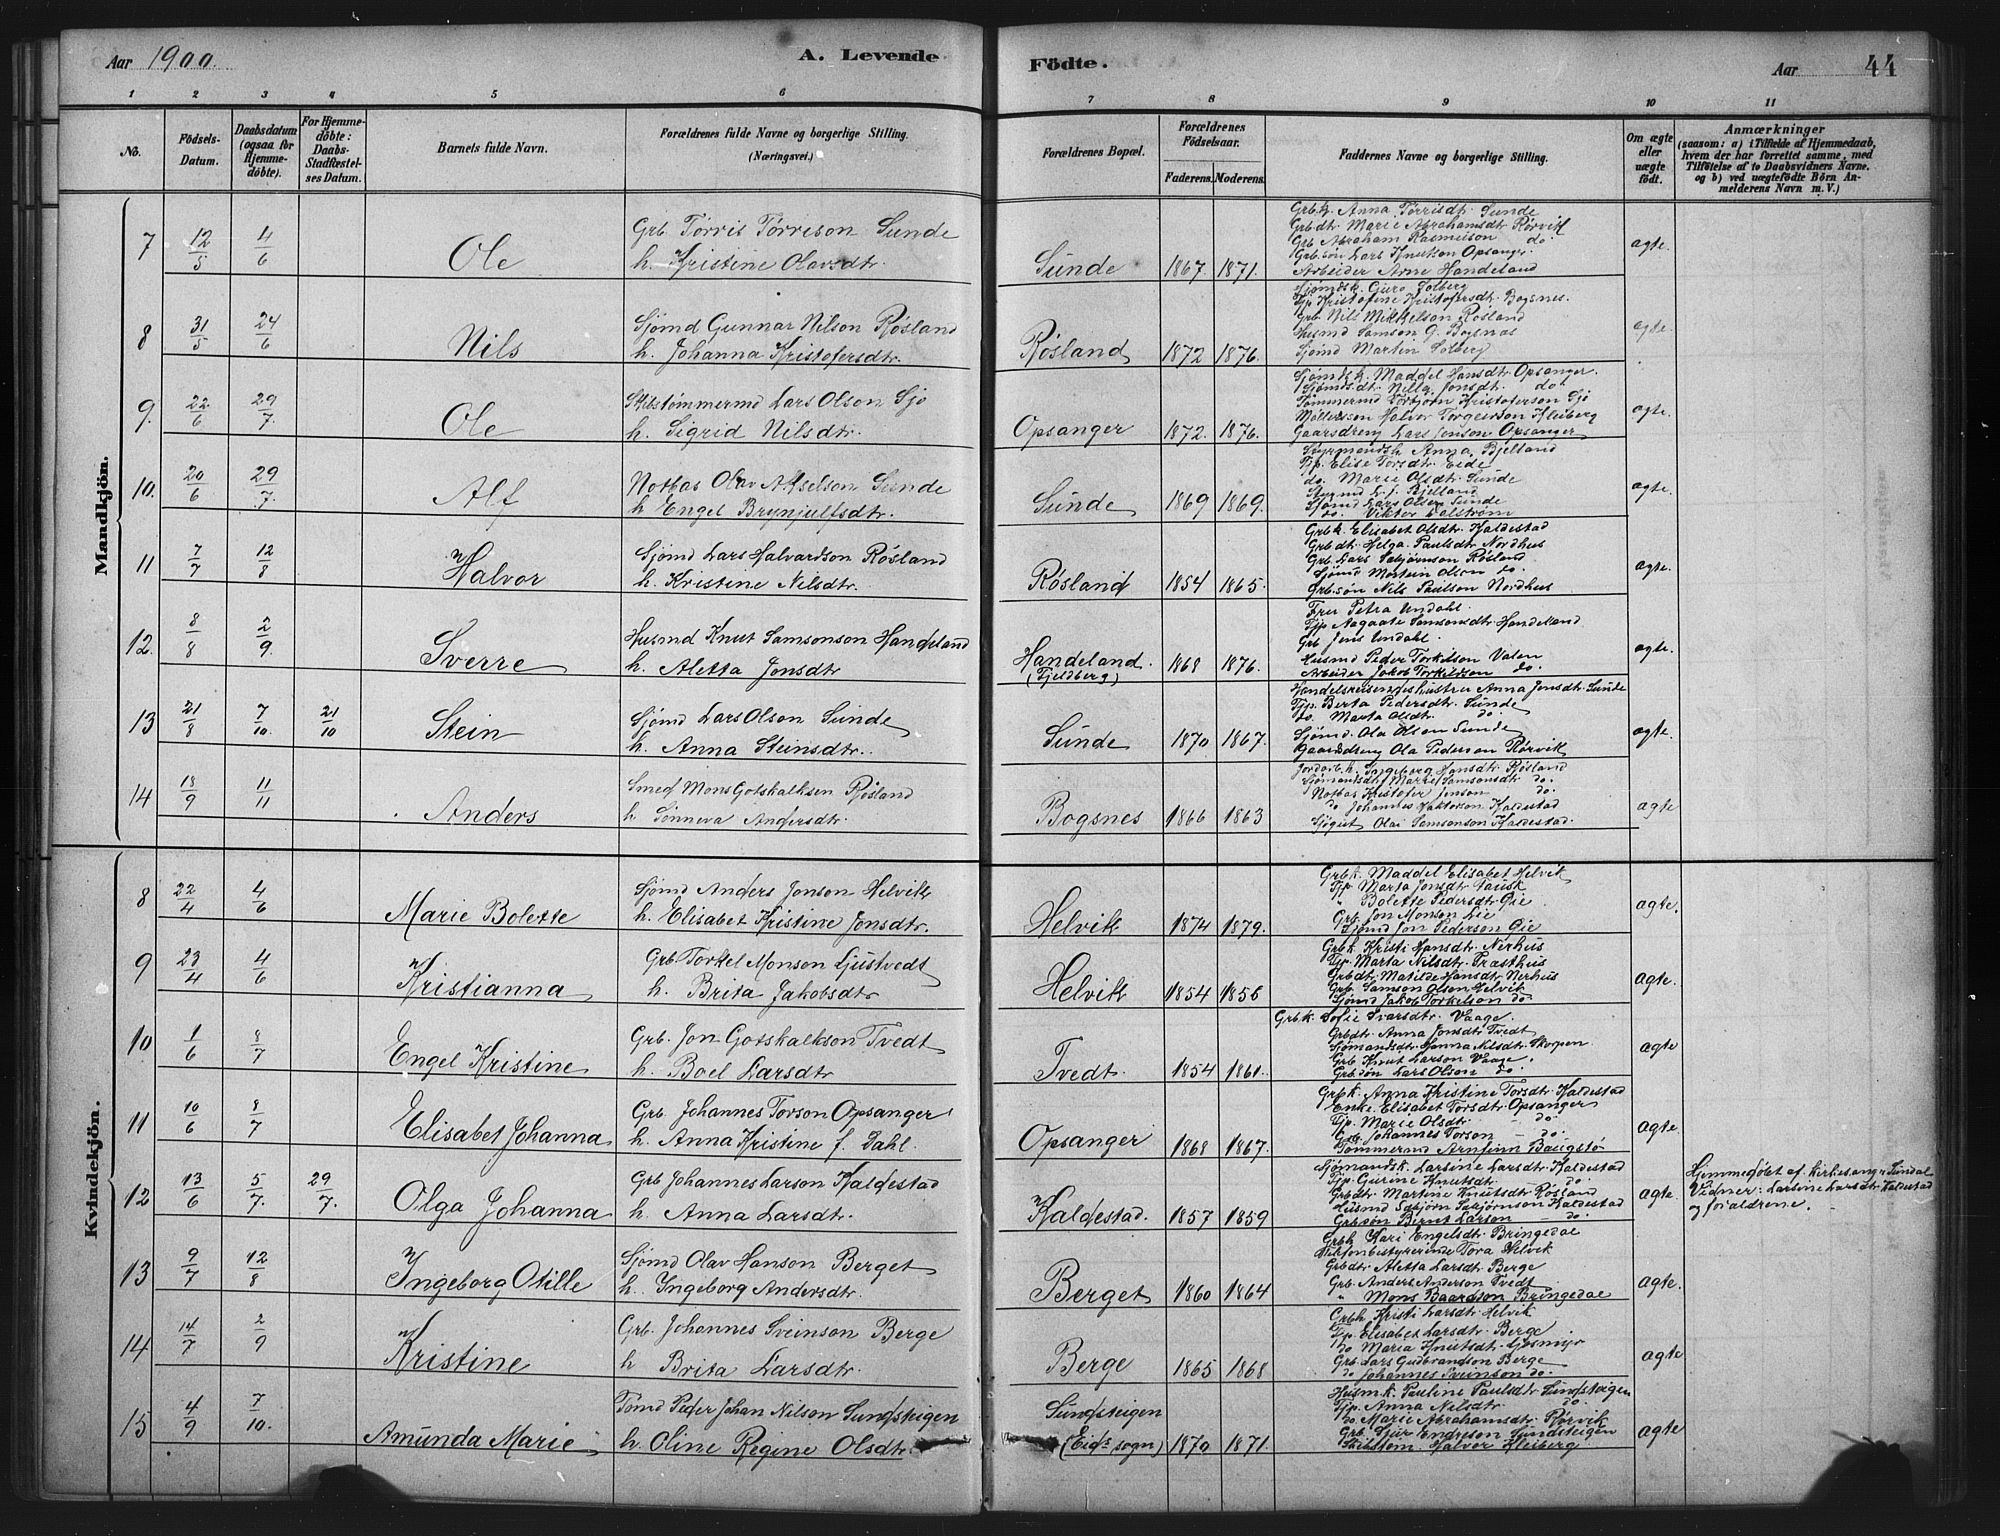 Aar 1900. A. Levende Födte. Aar 44
1 2 3 4 5 6 7 8 9 10 11
No.
Födsels-Datum.
Daabsdatum (ogsaa for Hjemmedöbte).
For Hjemmedöbte: Daabs-Stadfæstelses Datum.
Barnets fulde Navn.
Forældrenes fulde Navne og borgerlige Stilling. (Næringsvei.)
Forældrenes Bopæl.
Forældrenes Födselsaar. Faderens. Moderens.
Faddernes Navne og borgerlige Stilling.
Om ægte eller uægte födt.
Anmærkninger (saasom: a) i Tilfælde af Hjemmedaab, hvem der har forrettet samme, med Tilföielse af to Daabsvidners Navne. og b) ved uægtefödte Börn Anmelderens Navn m. V.)
Mandkjön.
7 12/5 4/6 Ole
Grb Tørris Tørrison Sunde
h. Kristine Olavsdtr.
Sunde 1867. 1871.
Grb.k. Anna Tørrisdtr. Sunde
Grb.dtr Marie Abrahamsdtr Rørvik
Grb Abraham Rasmuson do.
Grb.søn Lars Knutson Opsanger
Arbeider Arne Handeland
ægte.
8 31/5 24/6 Nils
Sjømd Gunnar Nilson Røsland
h. Johanna Kristofersdtr.
Røsland 1872 1876.
Sjømdsk. Guro Solberg
Tjp Kristofine Kristofersdtr. Bogsnes.
Grb Nils Mikkelson Røsland
Husmd Samson G. Bogsnas
Sjømd Martin Solberg
ægte.
9. 22/6 29/7. Ole
Skibstømmermd Lars Olson Sjo
h. Sigrid Nilsdtr.
Opsanger 1872. 1876.
Sjømdsk. Maddel Hansdtr Opsanger.
Sjømdsdt. Nille Jonsdt. do.
Tømmermd Torbjørn Kristoferson Sjo
Møllersson Halvor Torgeirson Kleiberg
Gaarsdreng Lars Jonson Opsanger
ægte.
10. 20/6 29/7. Alf
Notbas Olav Akselson Sunde
h Engel Brynjulfsdtr.
Sunde 1869 1869.
Styrmandsh Anna Bjelland
Tjp. Elise Torsdtr. Eide
do. Marie Olsdt Sunde
Styrmd L. J. Bjelland
Sjømd Lars Olson Sunde
do. Viktor Edlstrøm
ægte.
11 7/7 12/8 Halvor
Sjømd Lars Halvardson Røsland
h. Kristine Nilsdtr.
Røsland 1854 1865.
Grb k. Elisabet Olsdtr. Kaldestad
Grb.dt. Helga Paulsdtr Nordhus
Grb. Lars Sebjørnson Røsland
Sjømd Mortein Olson do.
Grb.søn Nils Paulson Nordhus
ægte.
12. 8/8 2/9. Sverre
Husmd Knut Samsonson Handeland
h. Aletta Jonsdtr
Handeland. (Fjeldberg) 1868 1876.
Fru Petra Undahl.
Tjp Aagaate Samsonsdtr Handeland
Grb Jens Undahl.
Husmd Peder Torkilson Valen
Arbeider Jakob Torkildson do.
ægte.
13 21/8 7/10. 21/10 Stein
Sjømd Lars Olson Sunde
h. Anna Steinsdtr.
Sunde 1870 1867.
Handelsreisendes hustru Anna Jonsdtr. Sunde
Tjp. Berta Pedersdtr. Sunde
do. Marta Olsdt. do.
Sjømd. Ola Olson Sunde
Gaardsdreng Ola Pederson Rørvik
ægte.
14 18/9 11/11 Anders
Smed Mons Gotskalksen Røsland
h Sønneva Andersdtr.
Bogsnes 1866 1863
Jordarb.k. Ingeborg Hansdtr. Røsland
Sjømandsdt. Marie Samsonsdtr do.
Notbas Kristofer Jenson do.
do Johannes Haktorson Kaldestad
Sjøgut Olai Samsonson Kaldestad.
ægte
Kvindekjön.
8 22/4 4/6 Marie Bolette
Sjømd Anders Jonson Helvik
h. Elisabet Kristine Jonsdtr.
Helvik 1874 1879.
Grb k. Maddel Elisabet Helvik
Tjp. Marta Jonsdtr Tausk
" Bolette Pedersdtr. Øie
Grb. Jon Monson Lie
Sjømd Jon Pederson Øie
ægte.
9 23/4 4/6 Kristianna
Grb. Torkel Monson Ljustvedt
h. Brita Jakobsdtr
Helvik 1854 1856
Grb k Kristi Hansdtr. Nerhus
Tjp. Marta Nilsdtr. Træsthus
Grb.dtr. Matilde Hansdtr Nerhus
Grb. Samson Olson Helvik
Sjømd Jakob Torkelson do.
ægte.
10 1/6 8/7 Engel Kristine
Grb. Jon Gotskalkson Tvedt
h. Boel Larsdtr
Tvedt. 1854 1861.
Grb.k. Sofie Ivarsdtr. Vaage.
Grb.dtr. Anna Jonsdtr Tvedt
Sjømandsdtr. Hanna Nilsdtr. Skorpen
Grb Knut Larson Vaage.
Grb.søn Lars Olson do.
ægte
11 10/6 8/7 Elisabet Johanna
Grb. Johannes Torson Opsanger
h. Anna Kristine f. Dahl.
Opsanger 1868 1867.
Grb k. Anna Kristine Torsdtr. Kaldestad
Enke. Elisabet Torsdtr. Opsanger
Tjp. Marie Olsdtr. – do.
Grb Johannes Torson – do.
Tømmermd Arnfinn Baugstø
ægte.
12 13/6 5/7. 29/7. Olga Johanna
Grb Johannes Larson Kaldestad
h. Anna Larsdtr.
Kaldestad. 1857 1859
Sjømandsk. Larsine Larsdtr. Kaldestad
Tjp. Gurine Knutsdt. do.
Grb.dtr. Martine Knutsdtr. Røsland
Husmd Sebjörn Sebjörnson Kaldestad
Grb.søn Bernt Larson – do.
ægte.
Hjemmedøbt af kirkesangr Sundal
Vidner: Larsine Larsdtr Kaldestad
og forældrene.
13 9/7 12/8 Ingeborg Otille
Sjømd Olav Hanson Berget
h. Ingeborg Andersdtr.
Berget 1860 1864
Grb.k Kari Engelsdtr. Bringedal
Telefonbestyrerinde Tora Helvik
Grb.dtr Aletta Larsdtr. Berge
Grb. Anders Anderson Tvedt
" Mons Baardson Bringedal
ægte.
14 14/7 2/9 Kristine
Grb. Johannes Sveinson Berge
h Brita Larsdtr.
Berge 1865 1868
Grb.k. Kristi Larsdtr. Helvik
Tjp. Elisabet Larsdtr. Berge
do Maria Knutsdt.
Grb. Lars Gudbrandson Berge
do Johannes Sveinson do.
ægte
15 4/9 7/10. Amunda Marie
Tømd Peder Johan Nilson Sundsteigen
h. Oline Regine Olsdtr.
Sundsteigen (Eids sogn) 1870 1871.
Husm.k. Pauline Paulsdtr Sundsteigen
Tjp. Anna Nilsdtr. do.
do. Marie Abrahamsdtr. Rørvik
Grb. Sjur Endreson Sundsteigen
Skibstøm. Halvor Kleiberg
ægte